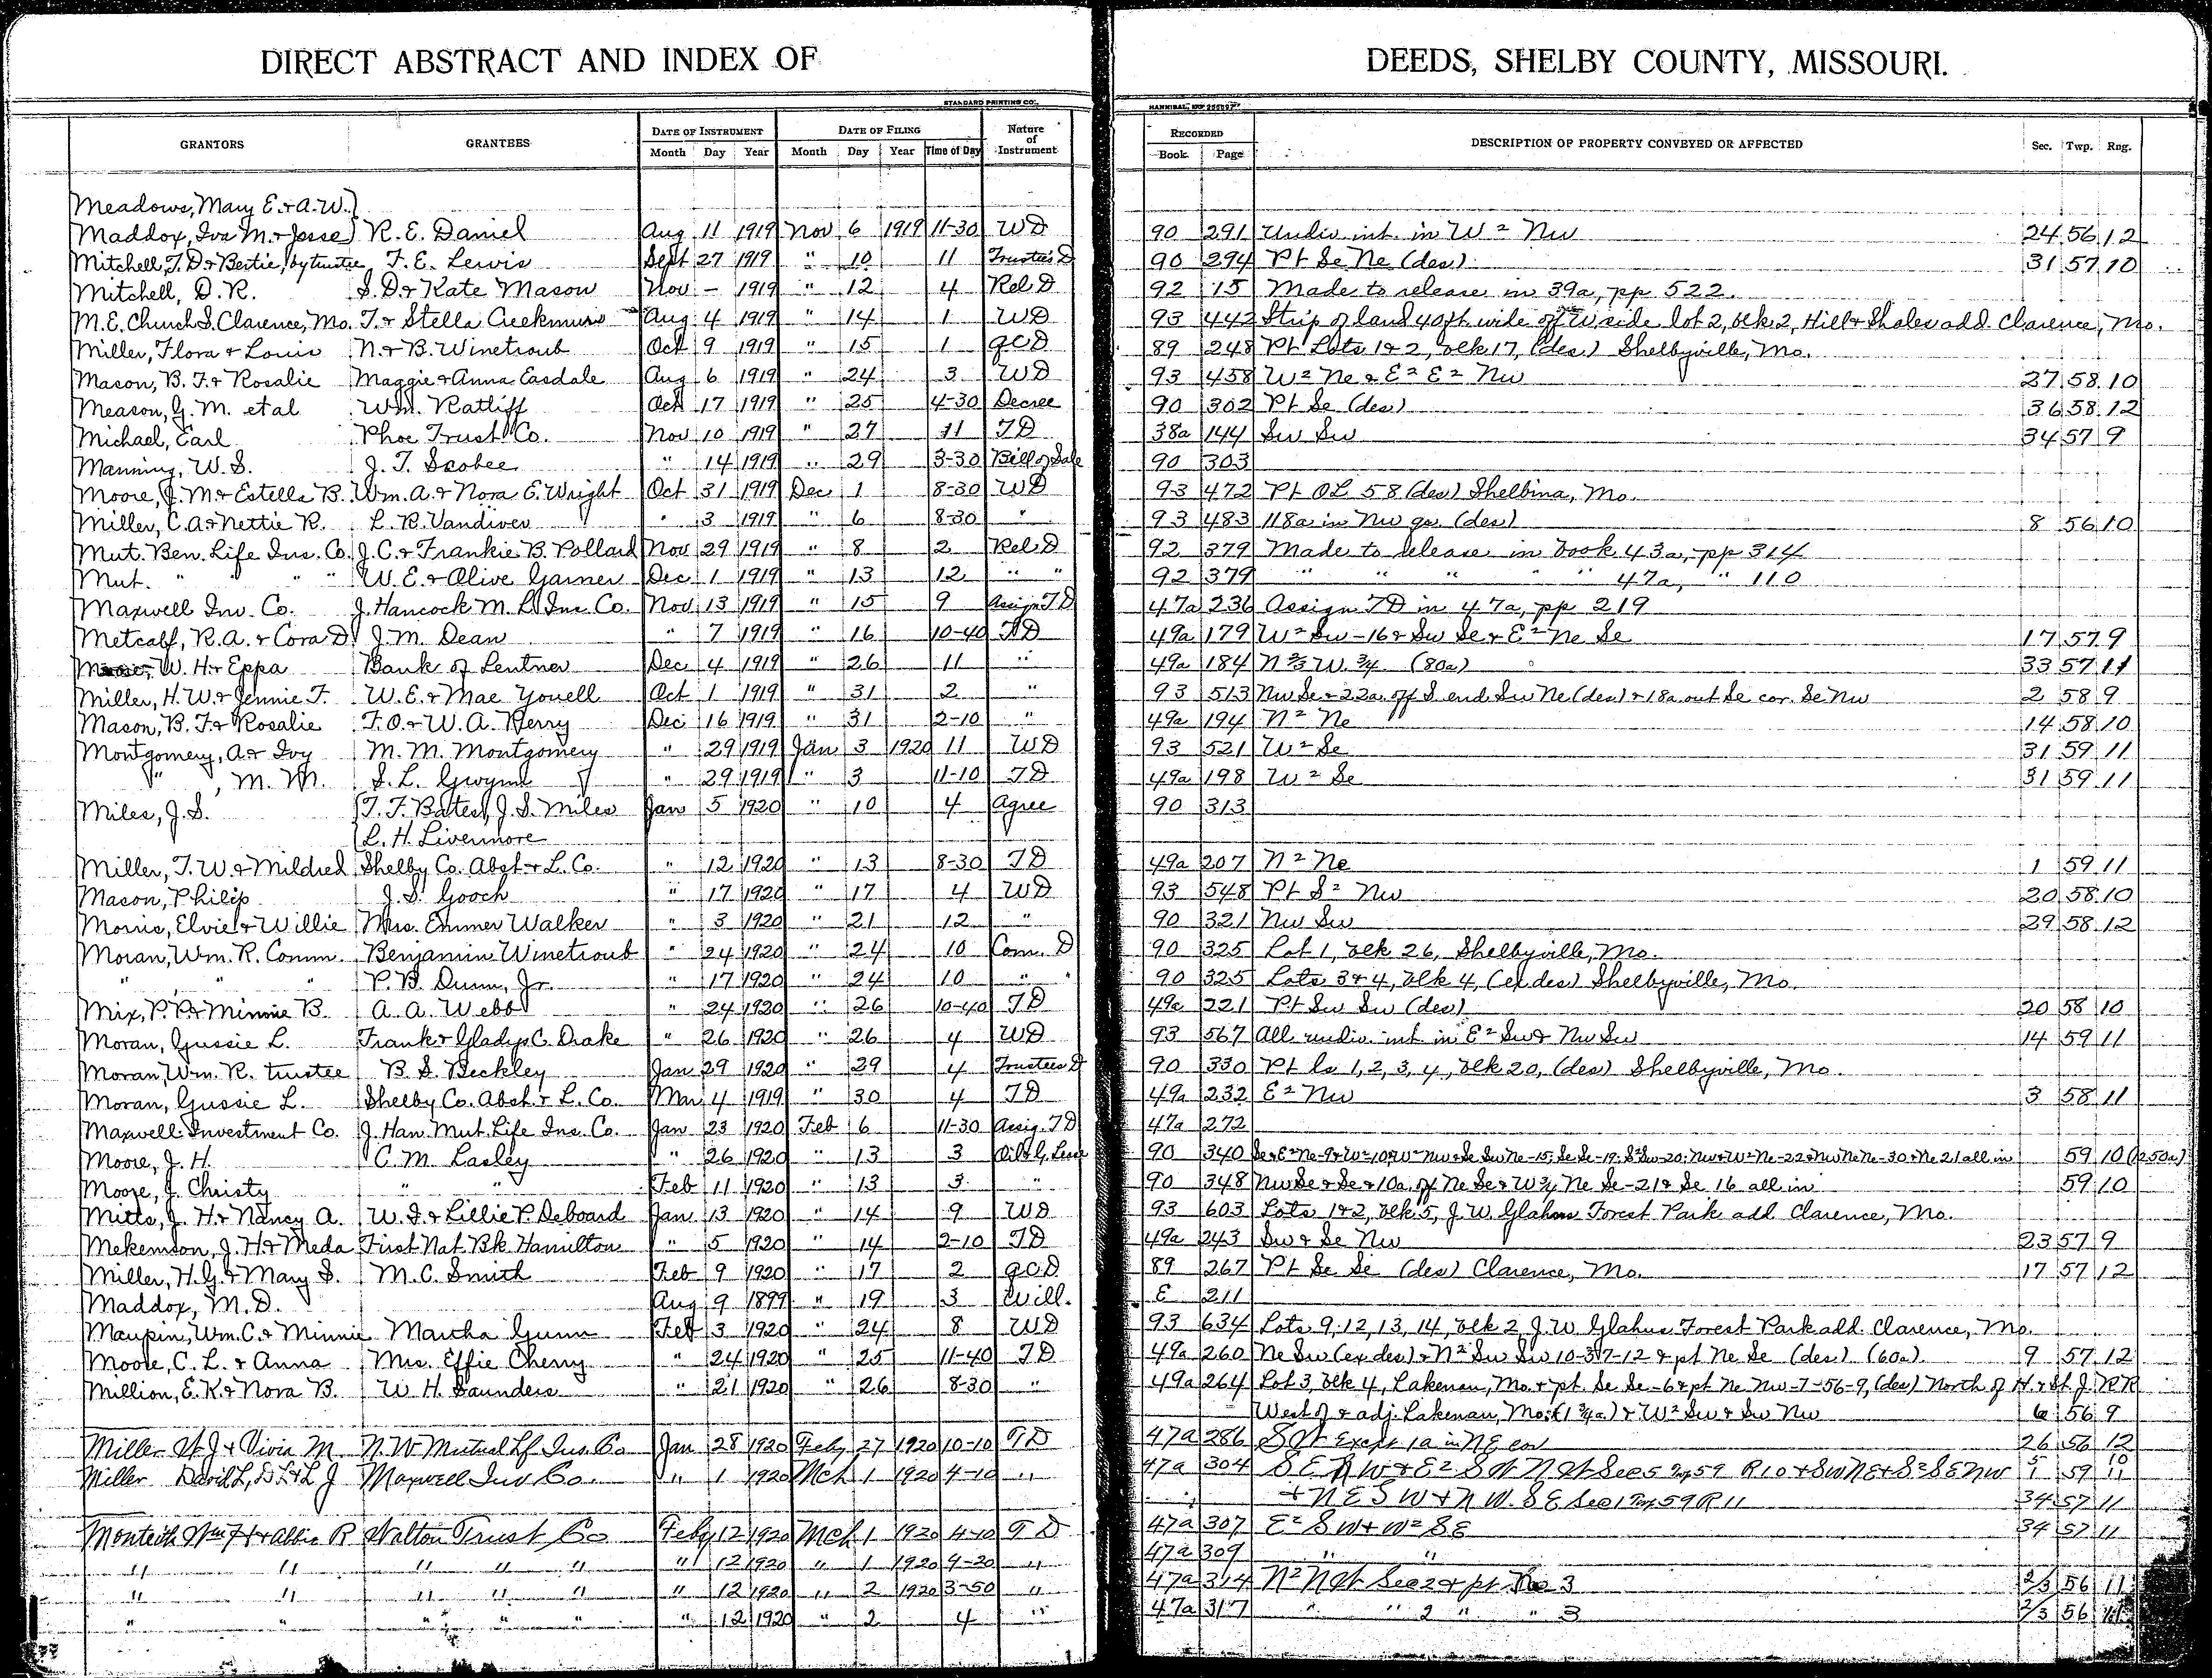 DIRECT ABSTRACT AND INDEX OF DEEDS, SHELBY COUNTY, MISSOURI.
STANDARD PRINTING CO., HANNIBAL, MO
GRANTORS GRANTEES DATE OF INSTRUMENT DATE OF FILING Nature of Instrument RECORDED DESCRIPTION OF PROPERTY CONVEYED OR AFFECTED Sec. Twp. Rng.
Month Day Year Month Day Year Time of Day Book Page
Meadows, Mary E. & A.W.
Maddox, Iva M. & Jesse R. E. Daniel Aug 11 1919 Nov 6 1919 11-30 WD 90 291 Undiv. int. in W 2 Nw 24 56 12
Mitchell, T. D. & Bertie, by trustee F. E. Lewis Sept 27 1919 " 10 11 Trustee's D 90 294 Pt Se Ne (des) 31 57 10
Mitchell, D. R. S. D. & Kate Mason Nov - 1919 " 12 4 Rel D 92 15 Made to release in 39a, pp 522.
M.E. Church S. Clarence, Mo. T. & Stella Creekmur Aug 4 1919 " 14 1 WD 93 442 Strip of land 40 ft wide off W side lot 2, blk 2, Hill & Shales add. Clarence, Mo.
Miller, Flora & Louis N. & B. Winetroub Oct 9 1919 " 15 1 QCD 89 248 Pt Lots 1 & 2, blk 17, (des) Shelbyville, Mo.
Mason, B. F. & Rosalie Maggie & Anna Easdale Aug 6 1919 " 24 3 WD 93 458 W 2 Ne & E 2 E 2 Nw 27 58 10
Meason, G. M. et al Wm. Ratliff Oct 17 1919 " 25 4-30 Decree 90 302 Pt Se (des) 36 58 12
Michael, Earl Phoe Trust Co. Nov 10 1919 " 27 11 TD 38a 144 Sw Sw 34 57 9
Manning, W. S. J. T. Scobee " 14 1919 " 29 3-30 Bill of Sale 90 303
Moore, J. M. & Estella B. Wm. A. & Nora E. Wright Oct 31 1919 Dec 1 8-30 WD 93 472 Pt OL 58 (des) Shelbina, Mo.
Miller, C. A. & Nettie R. L. R. Vandiver " 3 1919 " 6 8-30 " 93 483 118a in Nw qr. (des) 8 56 10
Mut. Ben. Life Ins. Co. J. C. & Frankie B. Pollard Nov 29 1919 " 8 2 Rel D 92 379 Made to release in book 43a, pp 314
Mut. " " " W. E. & Olive Garner Dec 1 1919 " 13 12 " " 92 379 " " " " " 47a, " 110
Maxwell Inv. Co. J. Hancock M. L. Ins. Co. Nov 13 1919 " 15 9 Assign TD 47a 236 Assign TD in 47a, pp 219
Metcalf, R. A. & Cora D. J. M. Dean " 7 1919 " 16 10-40 TD 49a 179 W 2 Sw - 16 & Sw Se & E 2 Ne Se 17 57 9
W. H. & Eppa Bank of Lentner Dec 4 1919 " 26 11 " 49a 184 N 2/3 W. 3/4 (80a) 33 57 11
Miller, H. W. & Jennie F. W. E. & Mae Youell Oct 1 1919 " 31 2 " 93 513 Nw Se & 22a off S end Sw Ne (des) & 18a out Se cor. Se Nw 2 58 9
Mason, B. F. & Rosalie F. O. & W. A. Perry Dec 16 1919 " 31 2-10 " 49a 194 N 2 Ne 14 58 10
Montgomery, A. & Ivy M. M. Montgomery " 29 1919 Jan 3 1920 11 WD 93 521 W 2 Se 31 59 11
" , M. M. S. L. Gwynn " 29 1919 " 3 11-10 TD 49a 198 W 2 Se 31 59 11
Miles, J. S. T. F. Bates, J. S. Miles Jan 5 1920 " 10 4 Agree 90 313
L. H. Livermore
Miller, T. W. & Mildred Shelby Co. Abst. & L. Co. " 12 1920 " 13 8-30 TD 49a 207 N 2 Ne 1 59 11
Mason, Philip J. S. Gooch " 17 1920 " 17 4 WD 93 548 Pt S 2 Nw 20 58 10
Morris, Elvie & Willie Mrs. Emmer Walker " 3 1920 " 21 12 " 90 321 Nw Sw 29 58 12
Moran, Wm. R. Comm. Benjamin Winetroub " 24 1920 " 24 10 Com. D 90 325 Lot 1, blk 26, Shelbyville, Mo.
" " " P. B. Dunn, Jr. " 17 1920 " 24 10 " " 90 325 Lots 3 & 4, blk 4, (ex des) Shelbyville, Mo.
Mix, P. P. & Minnie B. A. A. Webb " 24 1920 " 26 10-40 TD 49a 221 Pt Sw Sw (des) 20 58 10
Moran, Gussie L. Frank & Gladys C. Drake " 26 1920 " 26 4 WD 93 567 All undiv. int in E 2 Sw & Nw Sw 14 59 11
Moran, Wm. R. trustee B. S. Beckley Jan 29 1920 " 29 4 Trustees D 90 330 Pt ls 1, 2, 3, 4, blk 20, (des) Shelbyville, Mo.
Moran, Gussie L. Shelby Co. Abst. & L. Co. Mar 4 1919 " 30 4 TD 49a 232 E 2 Nw 3 58 11
Maxwell Investment Co. J. Han. Mut. Life Ins. Co. Jan 23 1920 Feb 6 11-30 Assig. TD 47a 272
Moore, J. H. C. M. Lasley " 26 1920 " 13 3 Oil & G. Lease 90 340 Se & E 2 Ne-9 & W 2-10 & W 2 Nw & Se Sw Ne-15; Se Se-19; S 2 Sw-20; Nw & W 2 Ne-22 & Nw Ne Ne-30 & Ne 21 all in 59 10 (1250a)
Moore, J. Christy " " Feb 11 1920 " 13 3 " 90 348 Nw Se & Se & 10a off Ne Se & W 3/4 Ne Se-21 & Se 16 all in 59 10
Mitts, J. H. & Nancy A. W. I. & Lillie P. Deboard Jan 13 1920 " 14 9 WD 93 603 Lots 1 & 2, blk 5, J. W. Glahns Forest Park add Clarence, Mo.
Mekemson, J. H. & Meda First Nat. Bk. Hamilton " 5 1920 " 14 2-10 TD 49a 243 Sw & Se Nw 23 57 9
Miller, H. G. & Mary S. M. C. Smith Feb 9 1920 " 17 2 QCD 89 267 Pt Se Se (des) Clarence, Mo. 17 57 12
Maddox, M. D. Aug 9 1899 " 19 3 Will. E 211
Maupin, Wm. C. & Minnie Martha Gunn Feb 3 1920 " 24 8 WD 93 634 Lots 9, 12, 13, 14, blk 2, J. W. Glahns Forest Park add. Clarence, Mo.
Moore, C. L. & Anna Mrs. Effie Cherry " 24 1920 " 25 11-40 TD 49a 260 Ne Sw (ex des) & N 2 Sw Sw 10-57-12 & pt Ne Se (des) (60a) 9 57 12
Million, E. K. & Nora B. W. H. Saunders " 21 1920 " 26 8-30 " 49a 264 Lot 3, blk 4, Lakenan, Mo. & pt. Se Se-6 & pt Ne Nw-7-56-9, (des) North of H. & St. J. RR
West of & adj. Lakenan, Mo. (1 3/4a) & W 2 Sw & Sw Nw 6 56 9
Miller St. J. & Vivia M N. W. Mutual Lf Ins. Co Jan 28 1920 Feby 27 1920 10-10 TD 47a 286 S W Except 1a in NE cor 26 56 12
Miller David L, D L & L J Maxwell Inv Co. " 1 1920 Mch 1 1920 4-10 " 47a 304 S E N W & E 2 S W N W Sec 5 Twp 59 R 10 & Sw NE & S 2 SE NW 5/1 59 10/11
& N E S W & N W. S E Sec 1 Twp 59 R 11 34 57 11
Monteith Wm F & Abbie R Walton Trust Co Feby 12 1920 Mch 1 1920 4-10 T D 47a 307 E 2 S W & W 2 S E 34 57 11
" " " " " " 12 1920 " 1 1920 4-20 " 47a 309 " "
" " " " " " 12 1920 " 2 1920 3-50 " 47a 314 N 2 N W Sec 2 & pt 3 2/3 56 11
" " " " " " 12 1920 " 2 4 " 47a 317 " " 2 " " 3 2/3 56 11